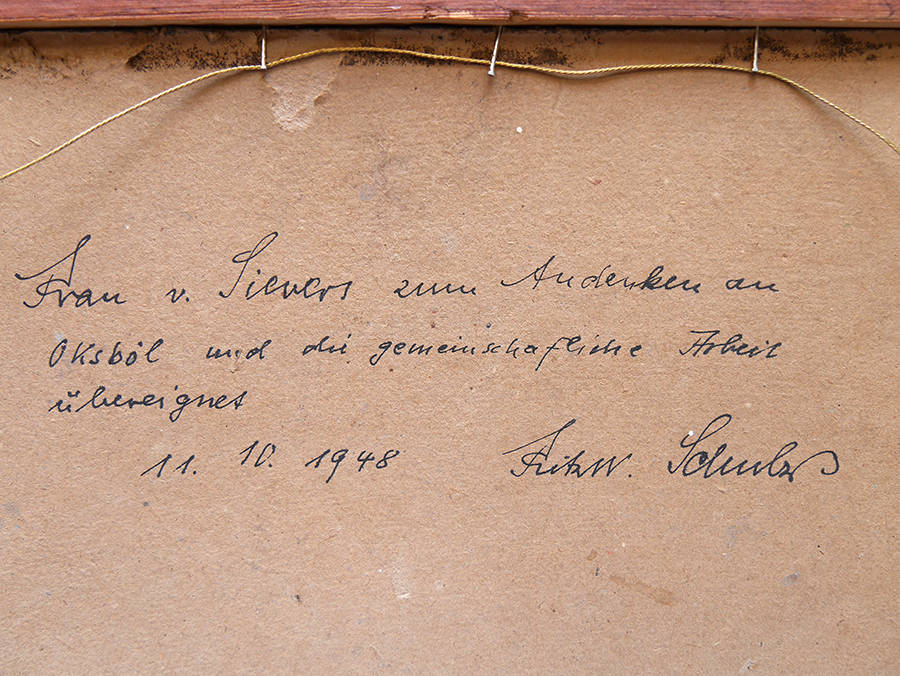 Frau v. Sievers zum Andenken an
Oksböl und die gemeinschaftliche Arbeit
übereignet
11. 10. 1948 FritzW. Schulz